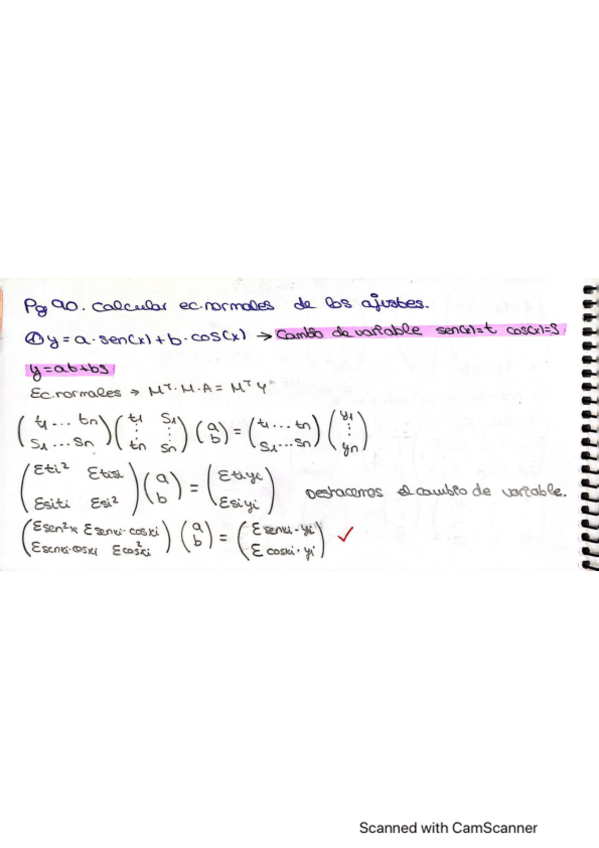 Pg 90. Calcular ec. normales de los ajustes.
① y = a · sen(x) + b · cos(x) → Cambio de variable sen(x)=t cos(x)=S
y = at + bS
Ec. normales → Mᵀ · M · A = Mᵀ Y
(t1 ... tn / S1 ... Sn) (t1 S1 / ⋮ ⋮ / tn Sn) (a / b) = (t1 ... tn / S1 ... Sn) (y1 / ⋮ / yn)
(Σti² Σtisi / Σsiti Σsi²) (a / b) = (Σtiyi / Σsiyi) Deshacemos el cambio de variable.
(Σsen²x Σsenxi·cosxi / Σsenxi·cosxi Σcos²xi) (a / b) = (Σsenxi·yi / Σcosxi·yi) ✓
Scanned with CamScanner